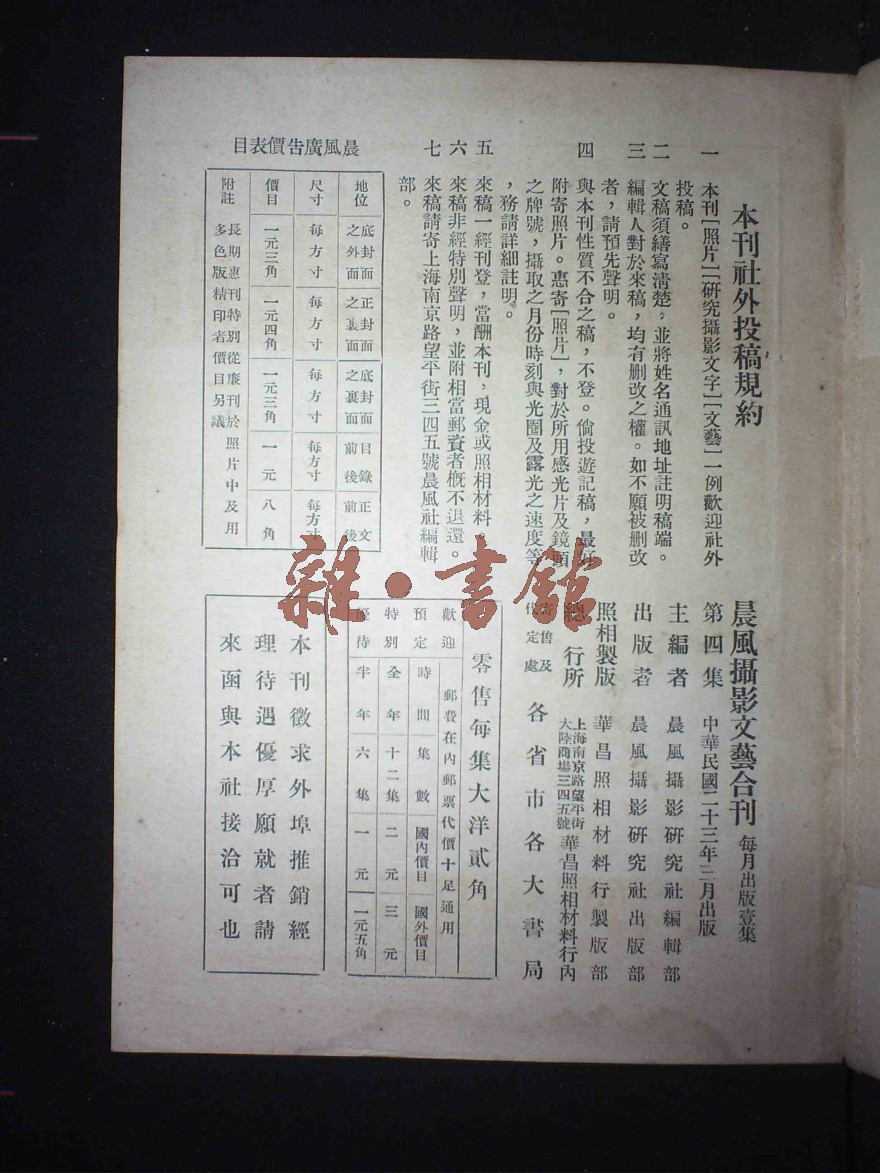 本刊社外投稿規約
一 本刊［照片］［研究攝影文字］［文藝］一例歡迎社外
投稿。
二 文稿須繕寫清楚，並將姓名通訊地址註明稿端。
三 編輯人對於來稿，均有刪改之權。如不願被刪改
者，請預先聲明。
四 與本刊性質不合之稿，不登。倘投遊記稿，最好
附寄照片。惠寄［照片］，對於所用感光片及鏡頭
之牌號，攝取之月份時刻與光圈及露光之速度等
，務請詳細註明。
五 來稿一經刊登，當酬本刊，現金或照相材料。
六 來稿非經特別聲明，並附相當郵資者概不退還。
七 來稿請寄上海南京路望平街三四五號晨風社編輯
部。
晨風廣告價表目
地位 底封面之外面 正封面之裏面 底封面之裏面 目錄前後 正文前後
尺寸 每方寸 每方寸 每方寸 每方寸 每方寸
價目 一元三角 一元四角 一元三角 一元 八角
附註 長期惠刊特別從廉刊於照片中及用
多色版精印者價目另議
晨風攝影文藝合刊 每月出版壹集
第四集 中華民國二十三年三月出版
主編者 晨風攝影研究社編輯部
出版者 晨風攝影研究社出版部
照相製版 華昌照相材料行製版部
總行所 上海南京路望平街大陸商場三四五號 華昌照相材料行內
寄售及代定處 各省市各大書局
零售每集大洋貳角
歡迎 郵費在內郵票代價十足通用
預定 時間 集數 國內價目 國外價目
特別 全年 十二集 二元 三元
優待 半年 六集 一元 一元五角
本刊徵求外埠推銷經
理待遇優厚願就者請
來函與本社接洽可也
雜·書館